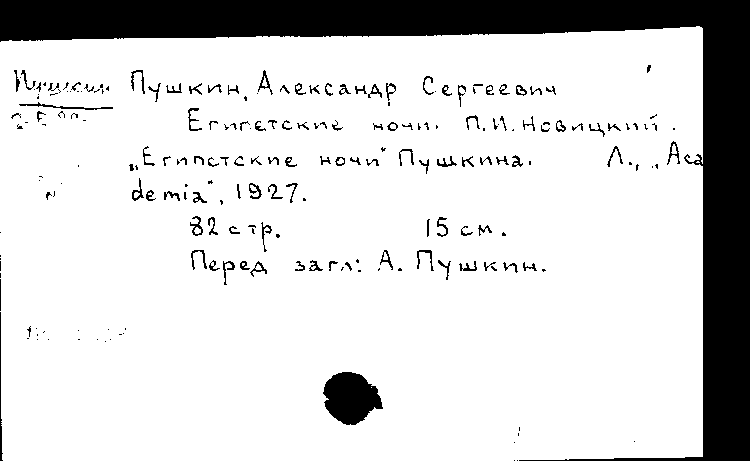 Пушкин
Пушкин, Александр Сергеевич
Египетские ночи. П.И. Новицкий.
„Египетские ночи" Пушкина. Л., „Aca
demia", 1927.
82 стр. 15 см.
Перед загл: А. Пушкин.